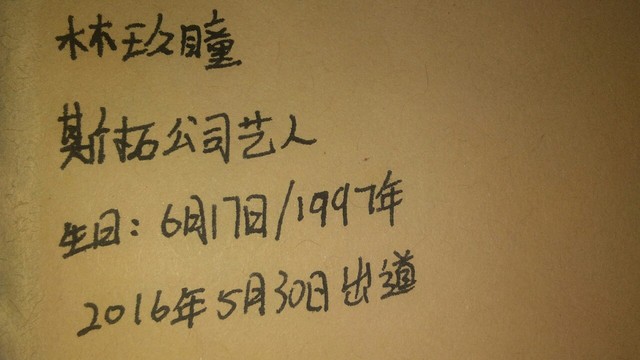 林玖瞳
斯拓公司艺人
生日：6月17日/1997年
2016年5月30日出道